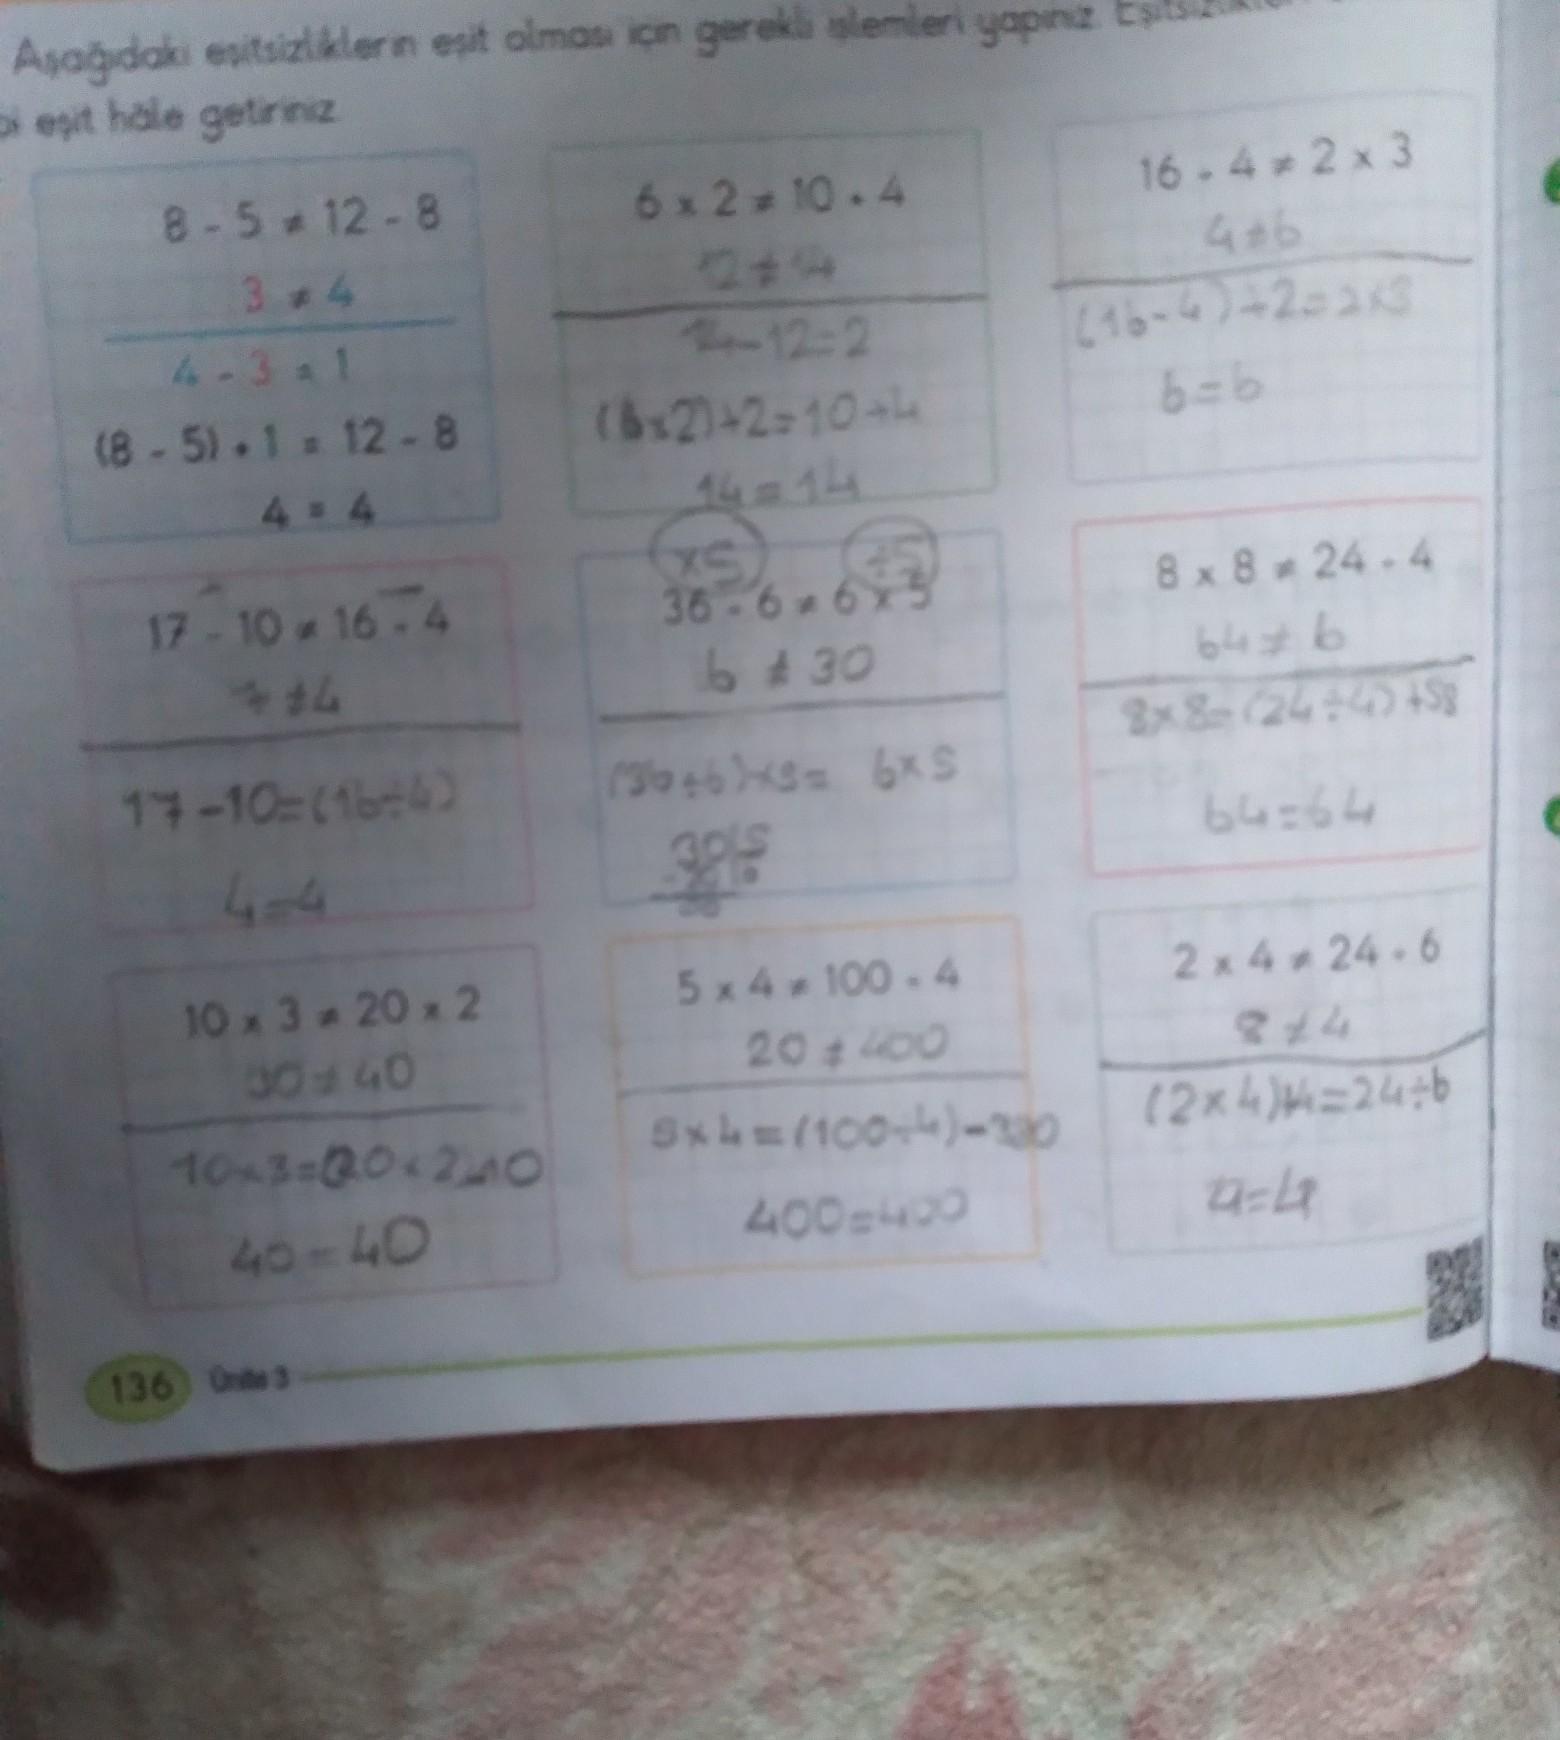 Aşağıdaki eşitsizliklerin eşit olması için gerekli işlemleri yapınız.
eşit hâle getiriniz.
8 - 5 ≠ 12 - 8
3 ≠ 4
4 - 3 = 1
(8 - 5) + 1 = 12 - 8
4 = 4
6 x 2 ≠ 10 + 4
12 ≠ 14
14-12=2
(6x2)+2=10+4
14=14
16 ÷ 4 ≠ 2 x 3
4≠6
(16÷4)+2=2x3
6=6
17 - 10 ≠ 16 ÷ 4
7≠4
17-10=(16÷4)
4=4
x5 ÷5
36 ÷ 6 ≠ 6 x 5
6 ≠ 30
(36÷6)x5= 6x5
30 5
8 x 8 ≠ 24 ÷ 4
64≠6
8x8=(24÷4)+58
64=64
10 x 3 ≠ 20 x 2
30≠40
40=40
5 x 4 ≠ 100 ÷ 4
20 ≠ 400
5x4=(100÷4)-380
400=400
2 x 4 ≠ 24 ÷ 6
8≠4
4=4
136 Ünite 3